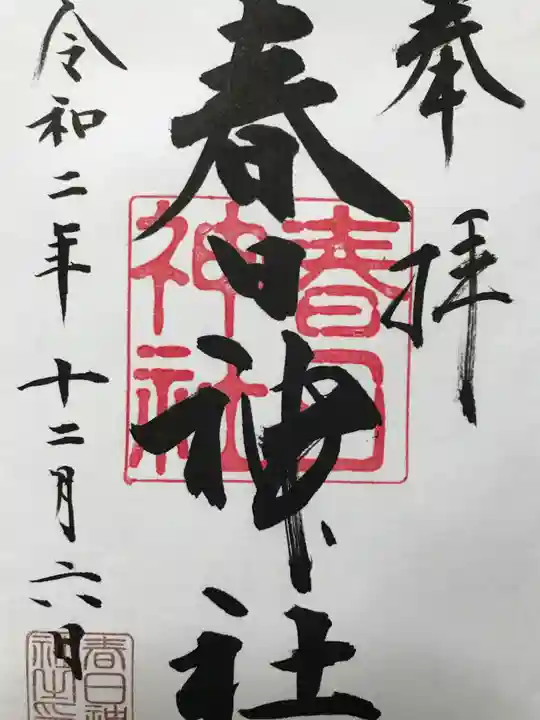 奉拝
春日神社
春日神社
令和二年十二月六日
春日神
社之印